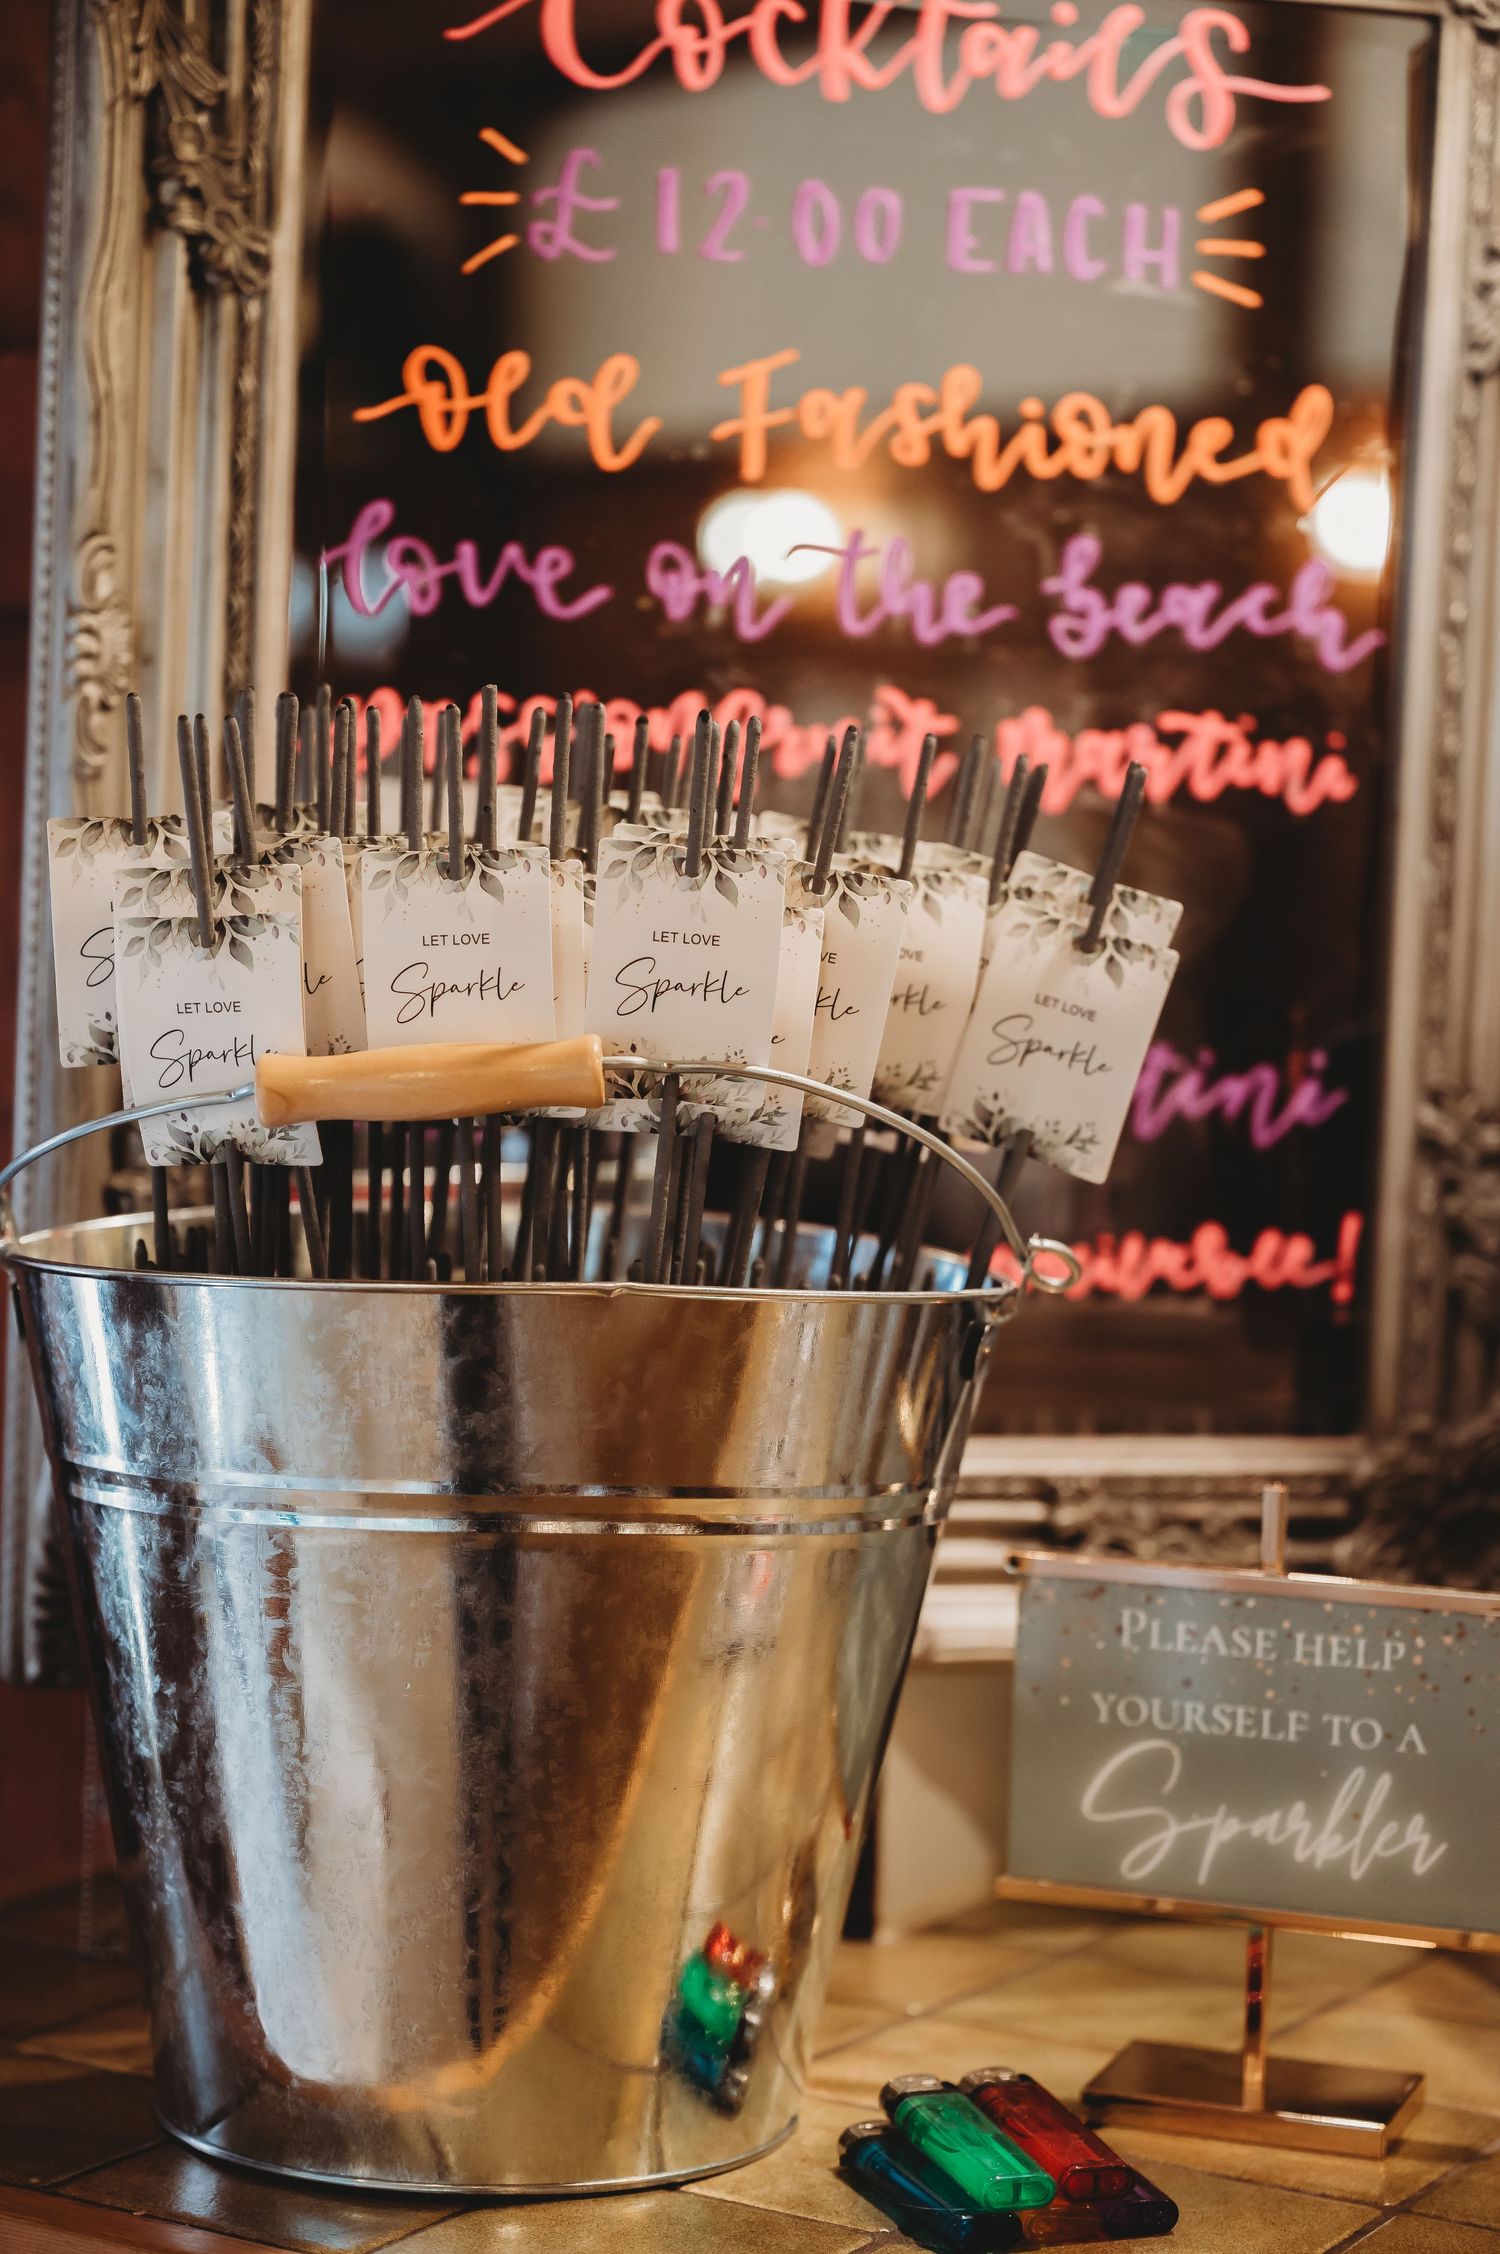 Cocktails
£12.00 EACH
Old Fashioned
love on the beach
passionfruit martini
tini
LET LOVE
Sparkle
LET LOVE
Sparkle
LET LOVE
Sparkle
LET LOVE
Sparkle
PLEASE HELP
YOURSELF TO A
Sparkler